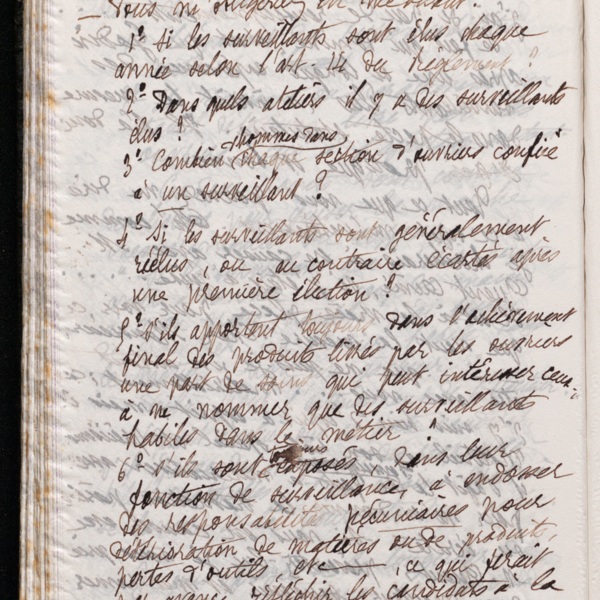 – Vous m'obligeriez en me disant :
1° Si les surveillants sont élus chaque
année selon l'art. 14 du Règlement ?
2° Dans quels ateliers il y a des surveillants
élus ?
hommes dans
3° Combien chaque section d'ouvriers confiée
à un surveillant ?
4° Si les surveillants sont généralement
réélus, ou au contraire écartés après
une première élection ?
5° S'ils apportent toujours dans l'achèvement
final des produits livrés par les ouvriers
une part de soins qui peut intéresser ceux-ci
à ne nommer que des surveillants
habiles dans le métier ?
6° S'ils sont exposés, dans leur
fonction de surveillance, à endosser
des responsabilités pécuniaires pour
détérioration de matières ou de produits,
pertes d'outils, etc, ce qui ferait
réfléchir les candidats à la